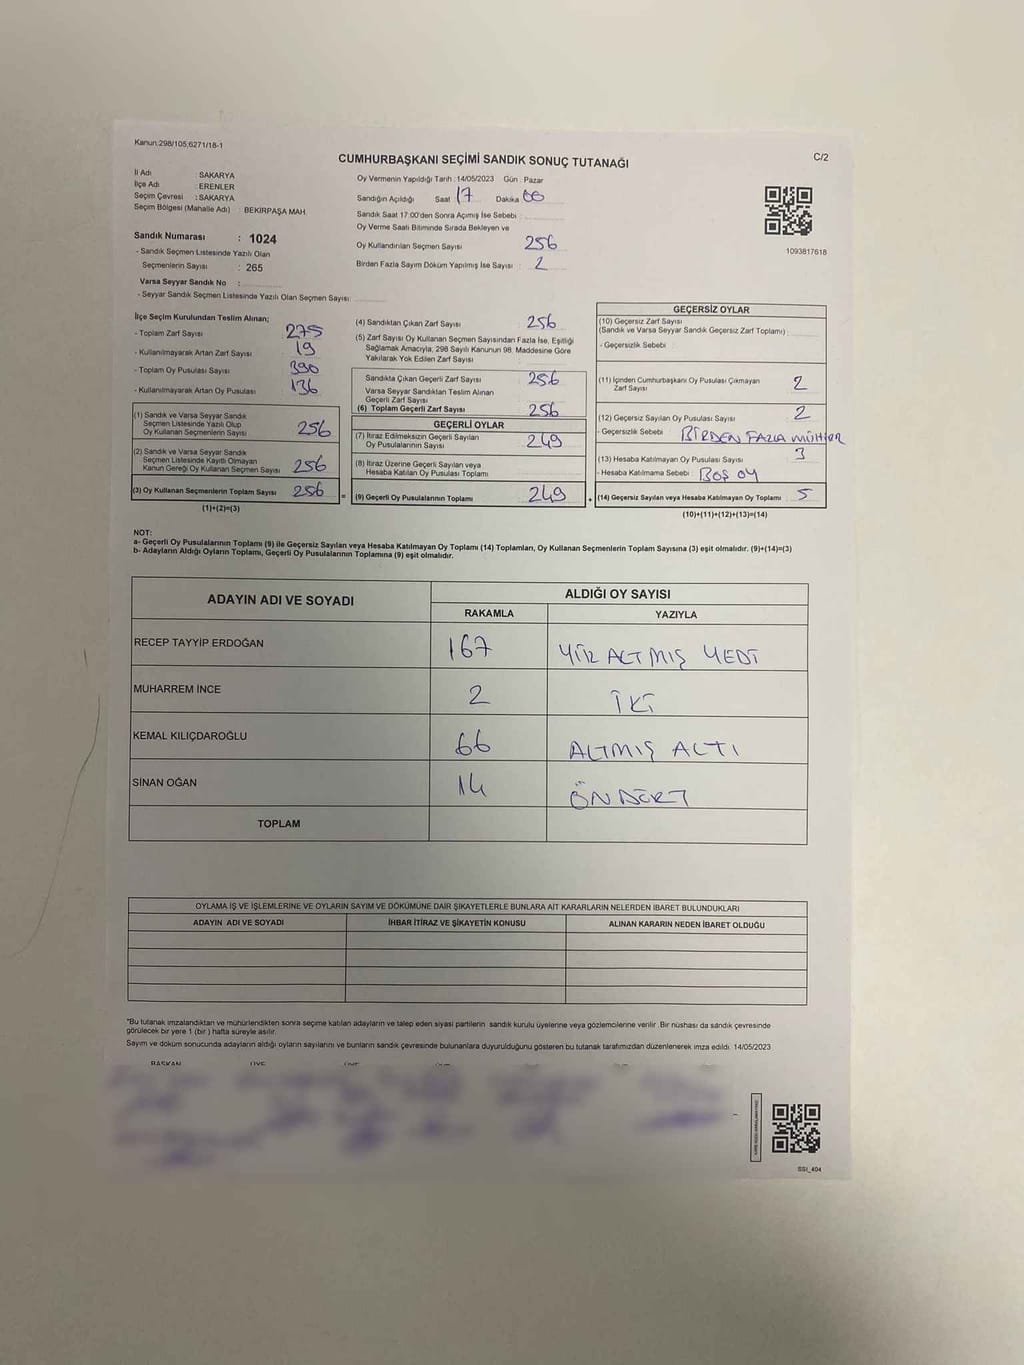 Kanun:298/105,6271/18-1
C/2
CUMHURBAŞKANI SEÇİMİ SANDIK SONUÇ TUTANAĞI
İl Adı : SAKARYA
İlçe Adı : ERENLER
Seçim Çevresi : SAKARYA
Seçim Bölgesi (Mahalle Adı) : BEKİRPAŞA MAH
Sandık Numarası : 1024
- Sandık Seçmen Listesinde Yazılı Olan
Seçmenlerin Sayısı : 265
Varsa Seyyar Sandık No :
- Seyyar Sandık Seçmen Listesinde Yazılı Olan Seçmen Sayısı :
Oy Vermenin Yapıldığı Tarih : 14/05/2023 Gün : Pazar
Sandığın Açıldığı Saat 17 Dakika 00
Sandık Saat 17:00'den Sonra Açımış İse Sebebi :
Oy Verme Saati Bitiminde Sırada Bekleyen ve
Oy Kullandırılan Seçmen Sayısı : 256
Birden Fazla Sayım Döküm Yapılmış İse Sayısı : 2
1093817618
İlçe Seçim Kurulundan Teslim Alınan;
- Toplam Zarf Sayısı : 275
- Kullanılmayarak Artan Zarf Sayısı : 19
- Toplam Oy Pusulası Sayısı : 390
- Kullanılmayarak Artan Oy Pusulası : 136
(1) Sandık ve Varsa Seyyar Sandık
Seçmen Listesinde Yazılı Olup
Oy Kullanan Seçmenlerin Sayısı 256
(2) Sandık ve Varsa Seyyar Sandık
Seçmen Listesinde Kayıtlı Olmayan
Kanun Gereği Oy Kullanan Seçmen Sayısı 256
(3) Oy Kullanan Seçmenlerin Toplam Sayısı 256 =
(1)+(2)=(3)
(4) Sandıktan Çıkan Zarf Sayısı : 256
(5) Zarf Sayısı Oy Kullanan Seçmen Sayısından Fazla İse, Eşitliği
Sağlamak Amacıyla; 298 Sayılı Kanunun 98. Maddesine Göre
Yakılarak Yok Edilen Zarf Sayısı :
Sandıkta Çıkan Geçerli Zarf Sayısı : 256
Varsa Seyyar Sandıktan Teslim Alınan
Geçerli Zarf Sayısı :
(6) Toplam Geçerli Zarf Sayısı : 256
GEÇERLİ OYLAR
(7) İtiraz Edilmeksizin Geçerli Sayılan
Oy Pusulalarının Sayısı : 249
(8) İtiraz Üzerine Geçerli Sayılan veya
Hesaba Katılan Oy Pusulası Toplamı :
(9) Geçerli Oy Pusulalarının Toplamı : 249 +
GEÇERSİZ OYLAR
(10) Geçersiz Zarf Sayısı
(Sandık ve Varsa Seyyar Sandık Geçersiz Zarf Toplamı) :
- Geçersizlik Sebebi :
(11) İçinden Cumhurbaşkanı Oy Pusulası Çıkmayan
Zarf Sayısı : 2
(12) Geçersiz Sayılan Oy Pusulası Sayısı : 2
- Geçersizlik Sebebi : BİRDEN FAZLA MÜHÜR
(13) Hesaba Katılmayan Oy Pusulası Sayısı : 3
- Hesaba Katılmama Sebebi : BOŞ OY
(14) Geçersiz Sayılan veya Hesaba Katılmayan Oy Toplamı : 5
(10)+(11)+(12)+(13)=(14)
NOT:
a- Geçerli Oy Pusulalarının Toplamı (9) ile Geçersiz Sayılan veya Hesaba Katılmayan Oy Toplamı (14) Toplamları, Oy Kullanan Seçmenlerin Toplam Sayısına (3) eşit olmalıdır. (9)+(14)=(3)
b- Adayların Aldığı Oyların Toplamı, Geçerli Oy Pusulalarının Toplamına (9) eşit olmalıdır.
ADAYIN ADI VE SOYADI ALDIĞI OY SAYISI
RAKAMLA YAZIYLA
RECEP TAYYİP ERDOĞAN 167 YÜZ ALTMIŞ YEDİ
MUHARREM İNCE 2 İKİ
KEMAL KILIÇDAROĞLU 66 ALTMIŞ ALTI
SİNAN OĞAN 14 ÖNDÖRT
TOPLAM
OYLAMA İŞ VE İŞLEMLERİNE VE OYLARIN SAYIM VE DÖKÜMÜNE DAİR ŞİKAYETLERLE BUNLARA AİT KARARLARIN NELERDEN İBARET BULUNDUKLARI
ADAYIN ADI VE SOYADI İHBAR İTİRAZ VE ŞİKAYETİN KONUSU ALINAN KARARIN NEDEN İBARET OLDUĞU
*Bu tutanak imzalandıktan ve mühürlendikten sonra seçime katılan adayların ve talep eden siyasi partilerin sandık kurulu üyelerine veya gözlemcilerine verilir. Bir nüshası da sandık çevresinde
görülecek bir yere 1 (bir) hafta süreyle asılır.
Sayım ve döküm sonucunda adayların aldığı oyların sayılarını ve bunların sandık çevresinde bulunanlara duyurulduğunu gösteren bu tutanak tarafımızdan düzenlenerek imza edildi. 14/05/2023
BAŞKAN ÜYE ÜYE
SSI_404